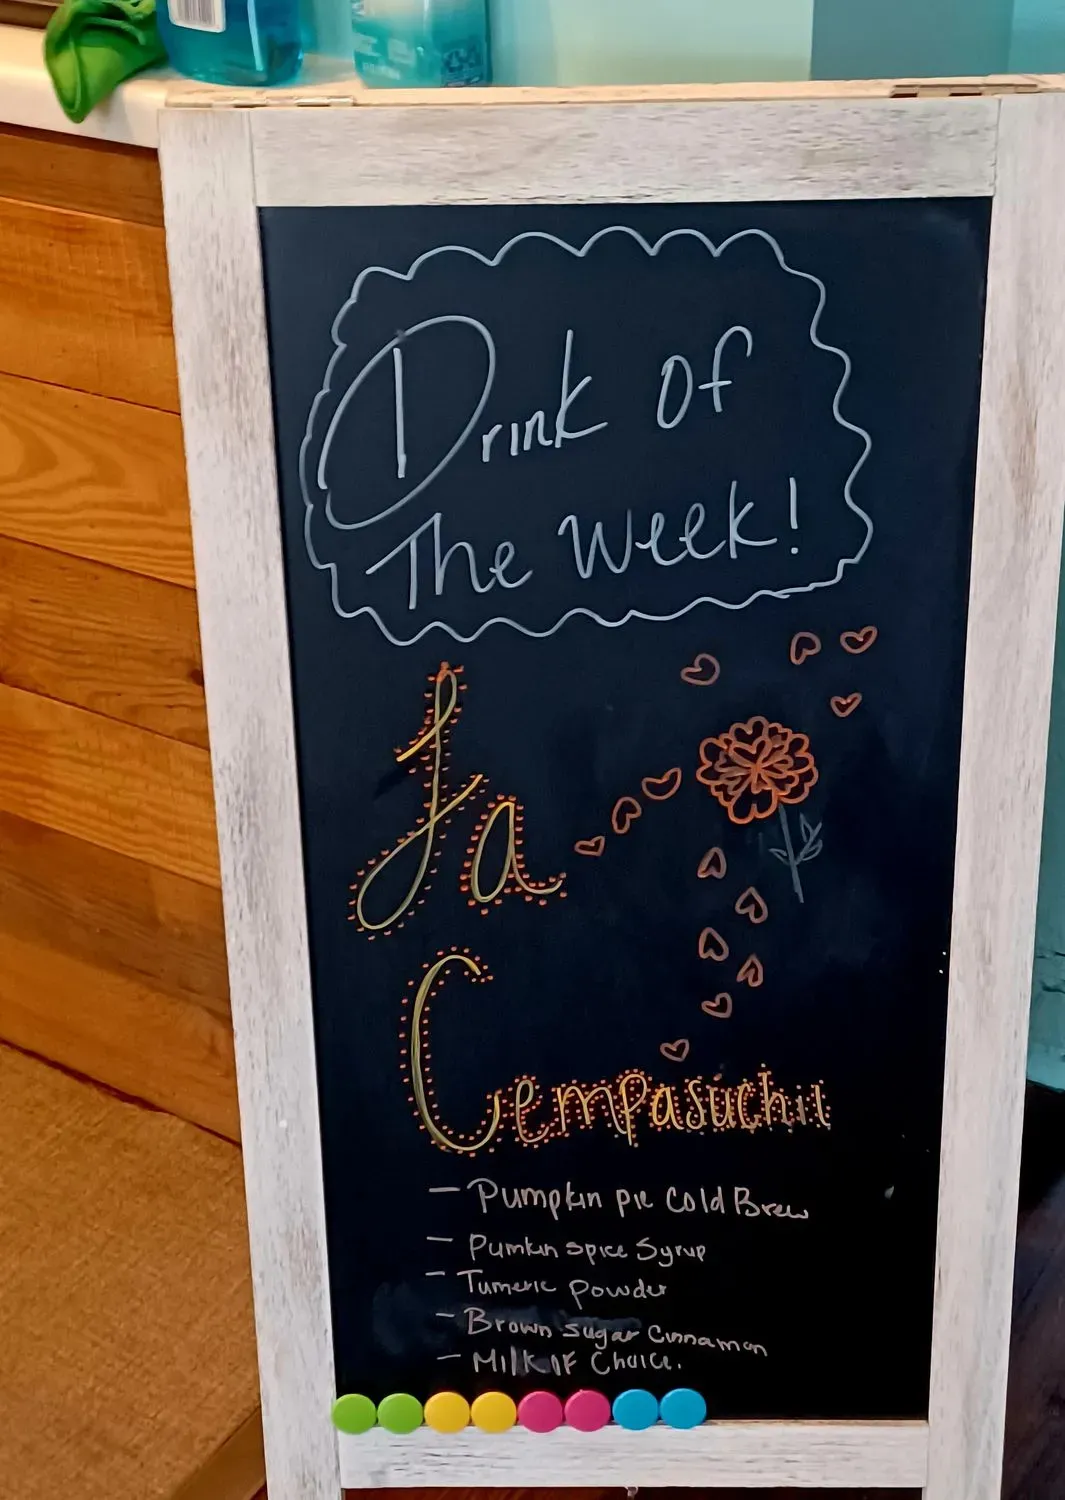 Drink Of
The Week!
La
Cempasúchil
- Pumpkin pie Cold Brew
- Pumkin spice Syrup
- Tumeric Powder
- Brown Sugar Cinnamon
- Milk Of Choice.